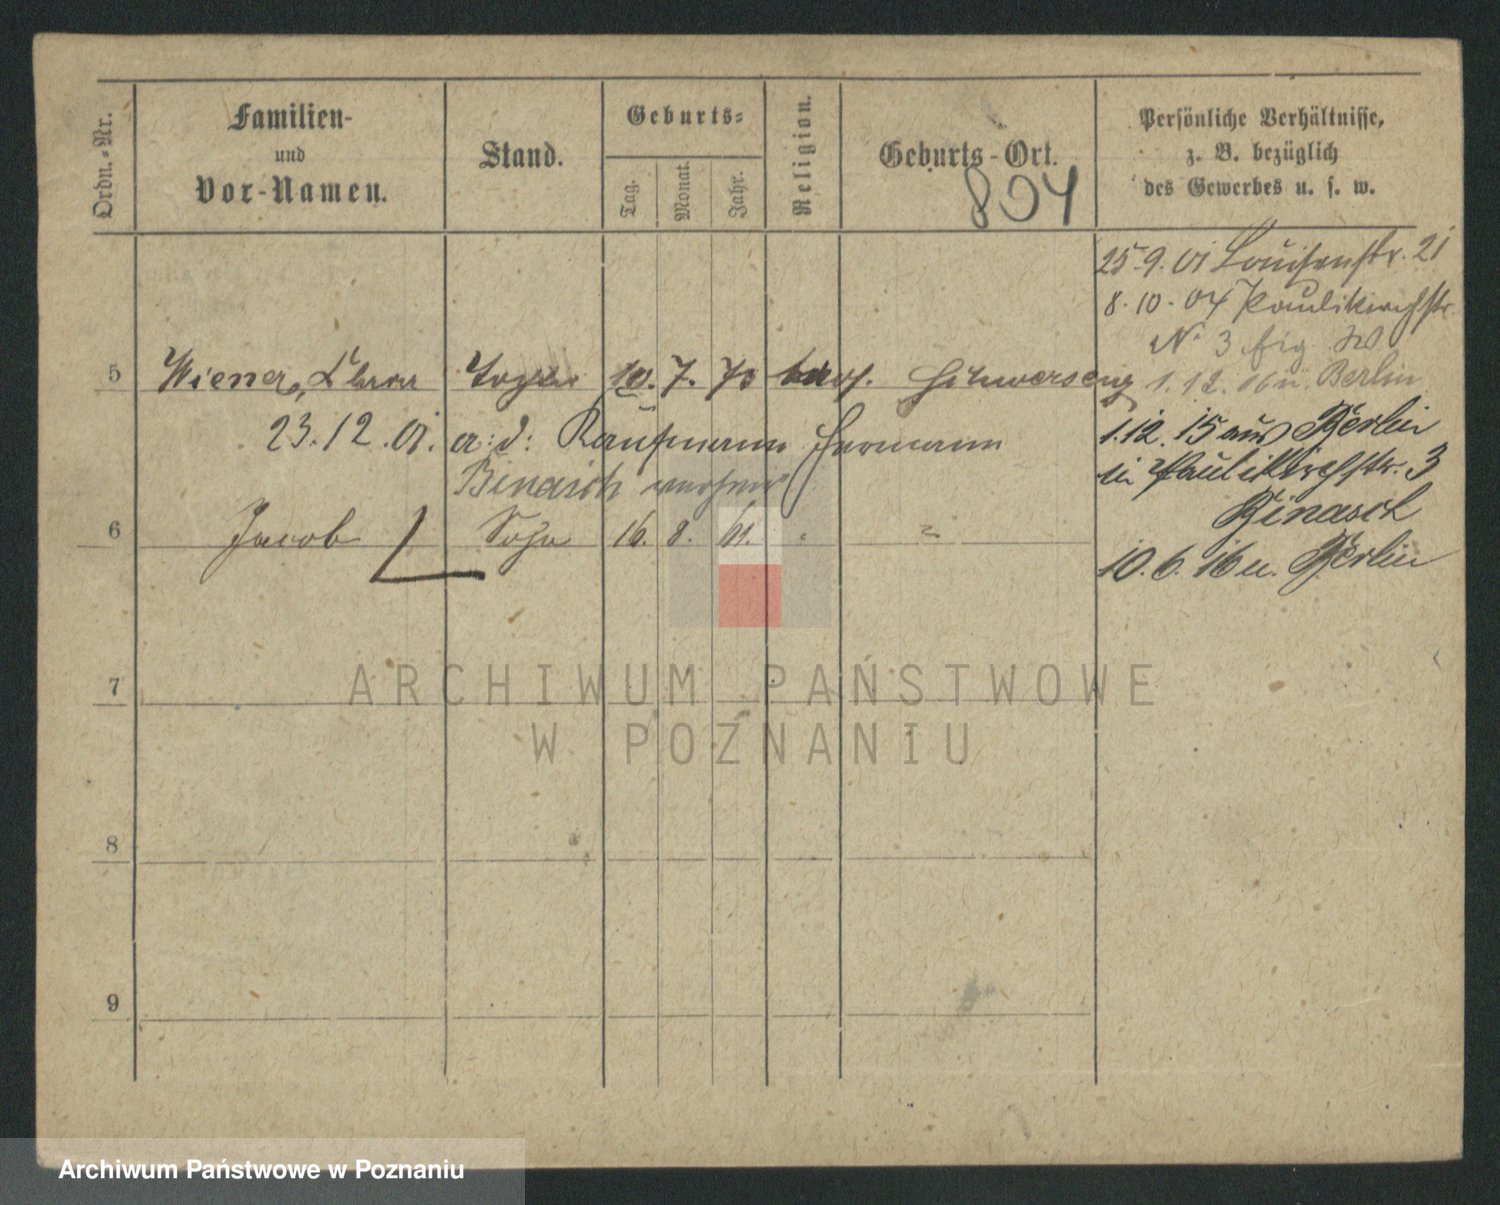 Ordn.-Nr.
Familien-
und
Vor-Namen.
Stand.
Geburts-
Tag.
Monat.
Jahr.
Religion.
Geburts-Ort.
804
Persönliche Verhältnisse,
z. B. bezüglich
des Gewerbes u. s. w.
25.9.01 Louisenstr. 21
8.10.04 Paulikirchstr.
No 3
1.12. u. Berlin
5 Wiener, Clara 10. 7. 73
23.12.01. a: d: Kaufmann Hermann
Binasch
1.12.15 aus Berlin
in Paulikirchstr. 3
Binasch
6 Jacob Sohn 16. 8. 61. "
10.6.16 u. Berlin
7
8
9
ARCHIWUM PAŃSTWOWE
W POZNANIU
Archiwum Państwowe w Poznaniu